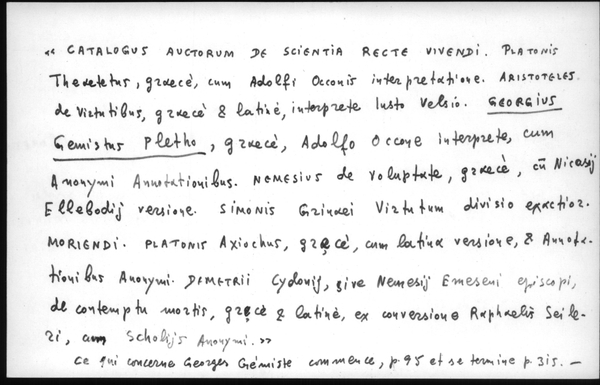 « CATALOGUS AUCTORUM DE SCIENTIA RECTE VIVENDI. PLATONIS
Theaetetus, graecè, cum Adolfi Occonis interpretatione. ARISTOTELES
de Virtutibus, graecè & latinè, interprete Iusto Velsio. GEORGIUS
Gemistus Pletho, graecè, Adolfo Occone interprete, cum
Anonymi Annotationibus. NEMESIUS de voluptate, graecè, cũ Nicasij
Ellebodij versione. SIMONIS Grinaei Virtutum divisio exactior.
MORIENDI. PLATONIS Axiochus, gręcè, cum latina versione, & Annota-
tionibus Anonymi. DEMETRII Cydonij, sive Nemesij Emeseni episcopi,
de contemptu mortis, gręcè & latinè, ex conversione Raphaelis Seile-
ri, cum Scholijs Anonymi. »
Ce qui concerne Georges Gémiste commence, p. 95 et se termine p. 315. —